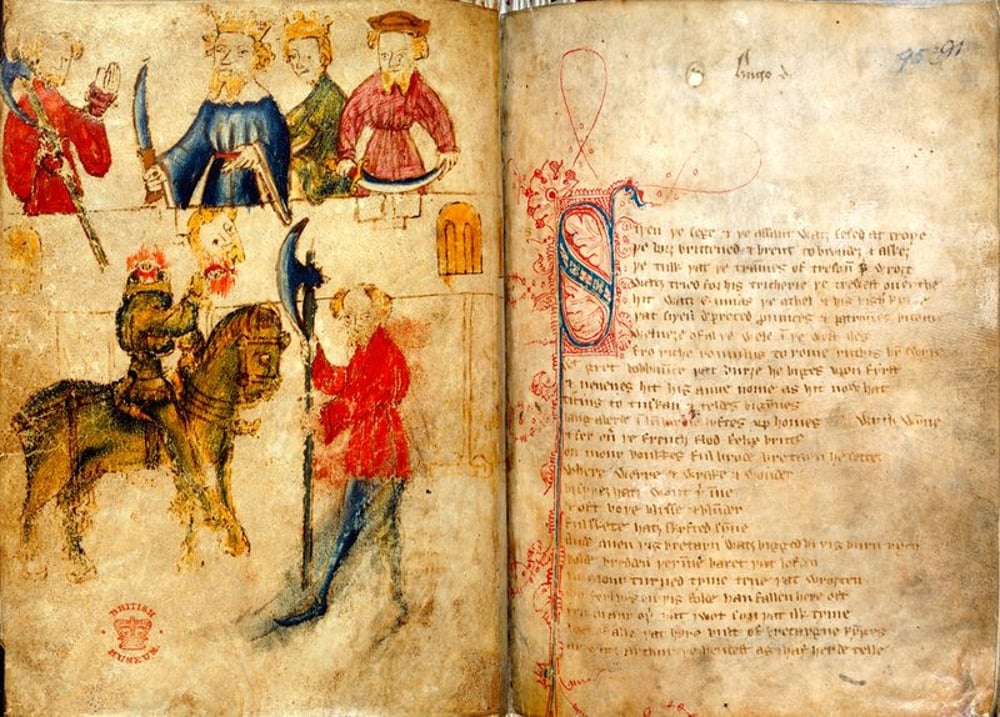 BRITISH
MUSEUM
Hugo de
95 91
Siþen þe sege & þe assaut watz sesed at troye
þe borȝ brittened & brent to brondeȝ & askez
þe tulk þat þe trammes of tresoun þ̉ wroȝt
watz tried for his tricherie þe trewest on erthe
hit watz Ennias þe athel & his highe
þat siþen depreced prouinces & patrounes bicome
welneȝe of al þe wele ī þe west iles
fro riche romulus to rome ricchis hym
gret bobbaūce þat burȝe he biges vpon fyrst
& neuenes hit his aune nome as hit now hat
ticius to tuskan & teldes bigynnes
langaberde ī lumbardie lyftes vp homes wyth wȳne
& fer oủ þe french flod felix brut⁹
on mony bonkkes ful brode bretayn he settez
where werre & wrake & wonder
bi syþez hatz wont þ̉ īne
& oft boþe blysse & blunder
ful skete hatz skyfted sȳne
Ande quen þis bretayn watz bigged bi þis burn rych
bolde bredden þ̉īne baret þat lofden
in mony turned tyme tene þat wroȝten
mo ferlyes on þis folde han fallen here oft
þen ī any oþ̉ þat I wot syn þat ilk tyme
bot of alle þat here bult of bretaygne kȳges
ay watz arthur þe hendest as I haf herde telle